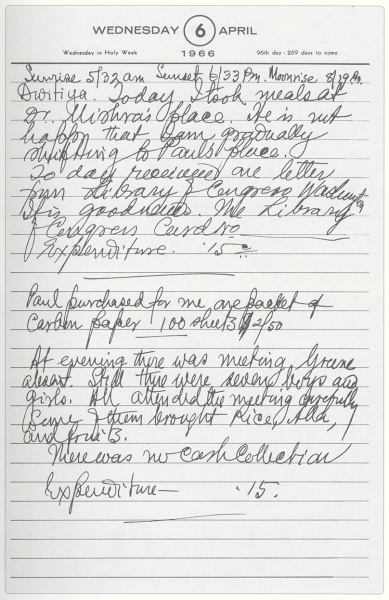 WEDNESDAY 6 APRIL
Wednesday in Holy Week 1966 96th day - 269 days to come
Sunrise 5/32 am Sunset 6/33 Pm. Moonrise 8/29 Pm.
Dwitiya. Today I took meals at
Dr. Mishra's place. He is not
happy that I am gradually
shifting to Paul's place.
To day received one letter
from Library of Congress Washington
It is good news. The Library
of Congress Card no
Expenditure. '15
Paul purchased for me one packet of
Carbon paper 100 sheets $ 2/50
At evening there was meeting. Greene
absent. Still there were seven boys and
girls. All attended the meeting carefully
Some of them brought Rice, Atta,
and fruits.
There was no Cash Collection
Expenditure — '15.